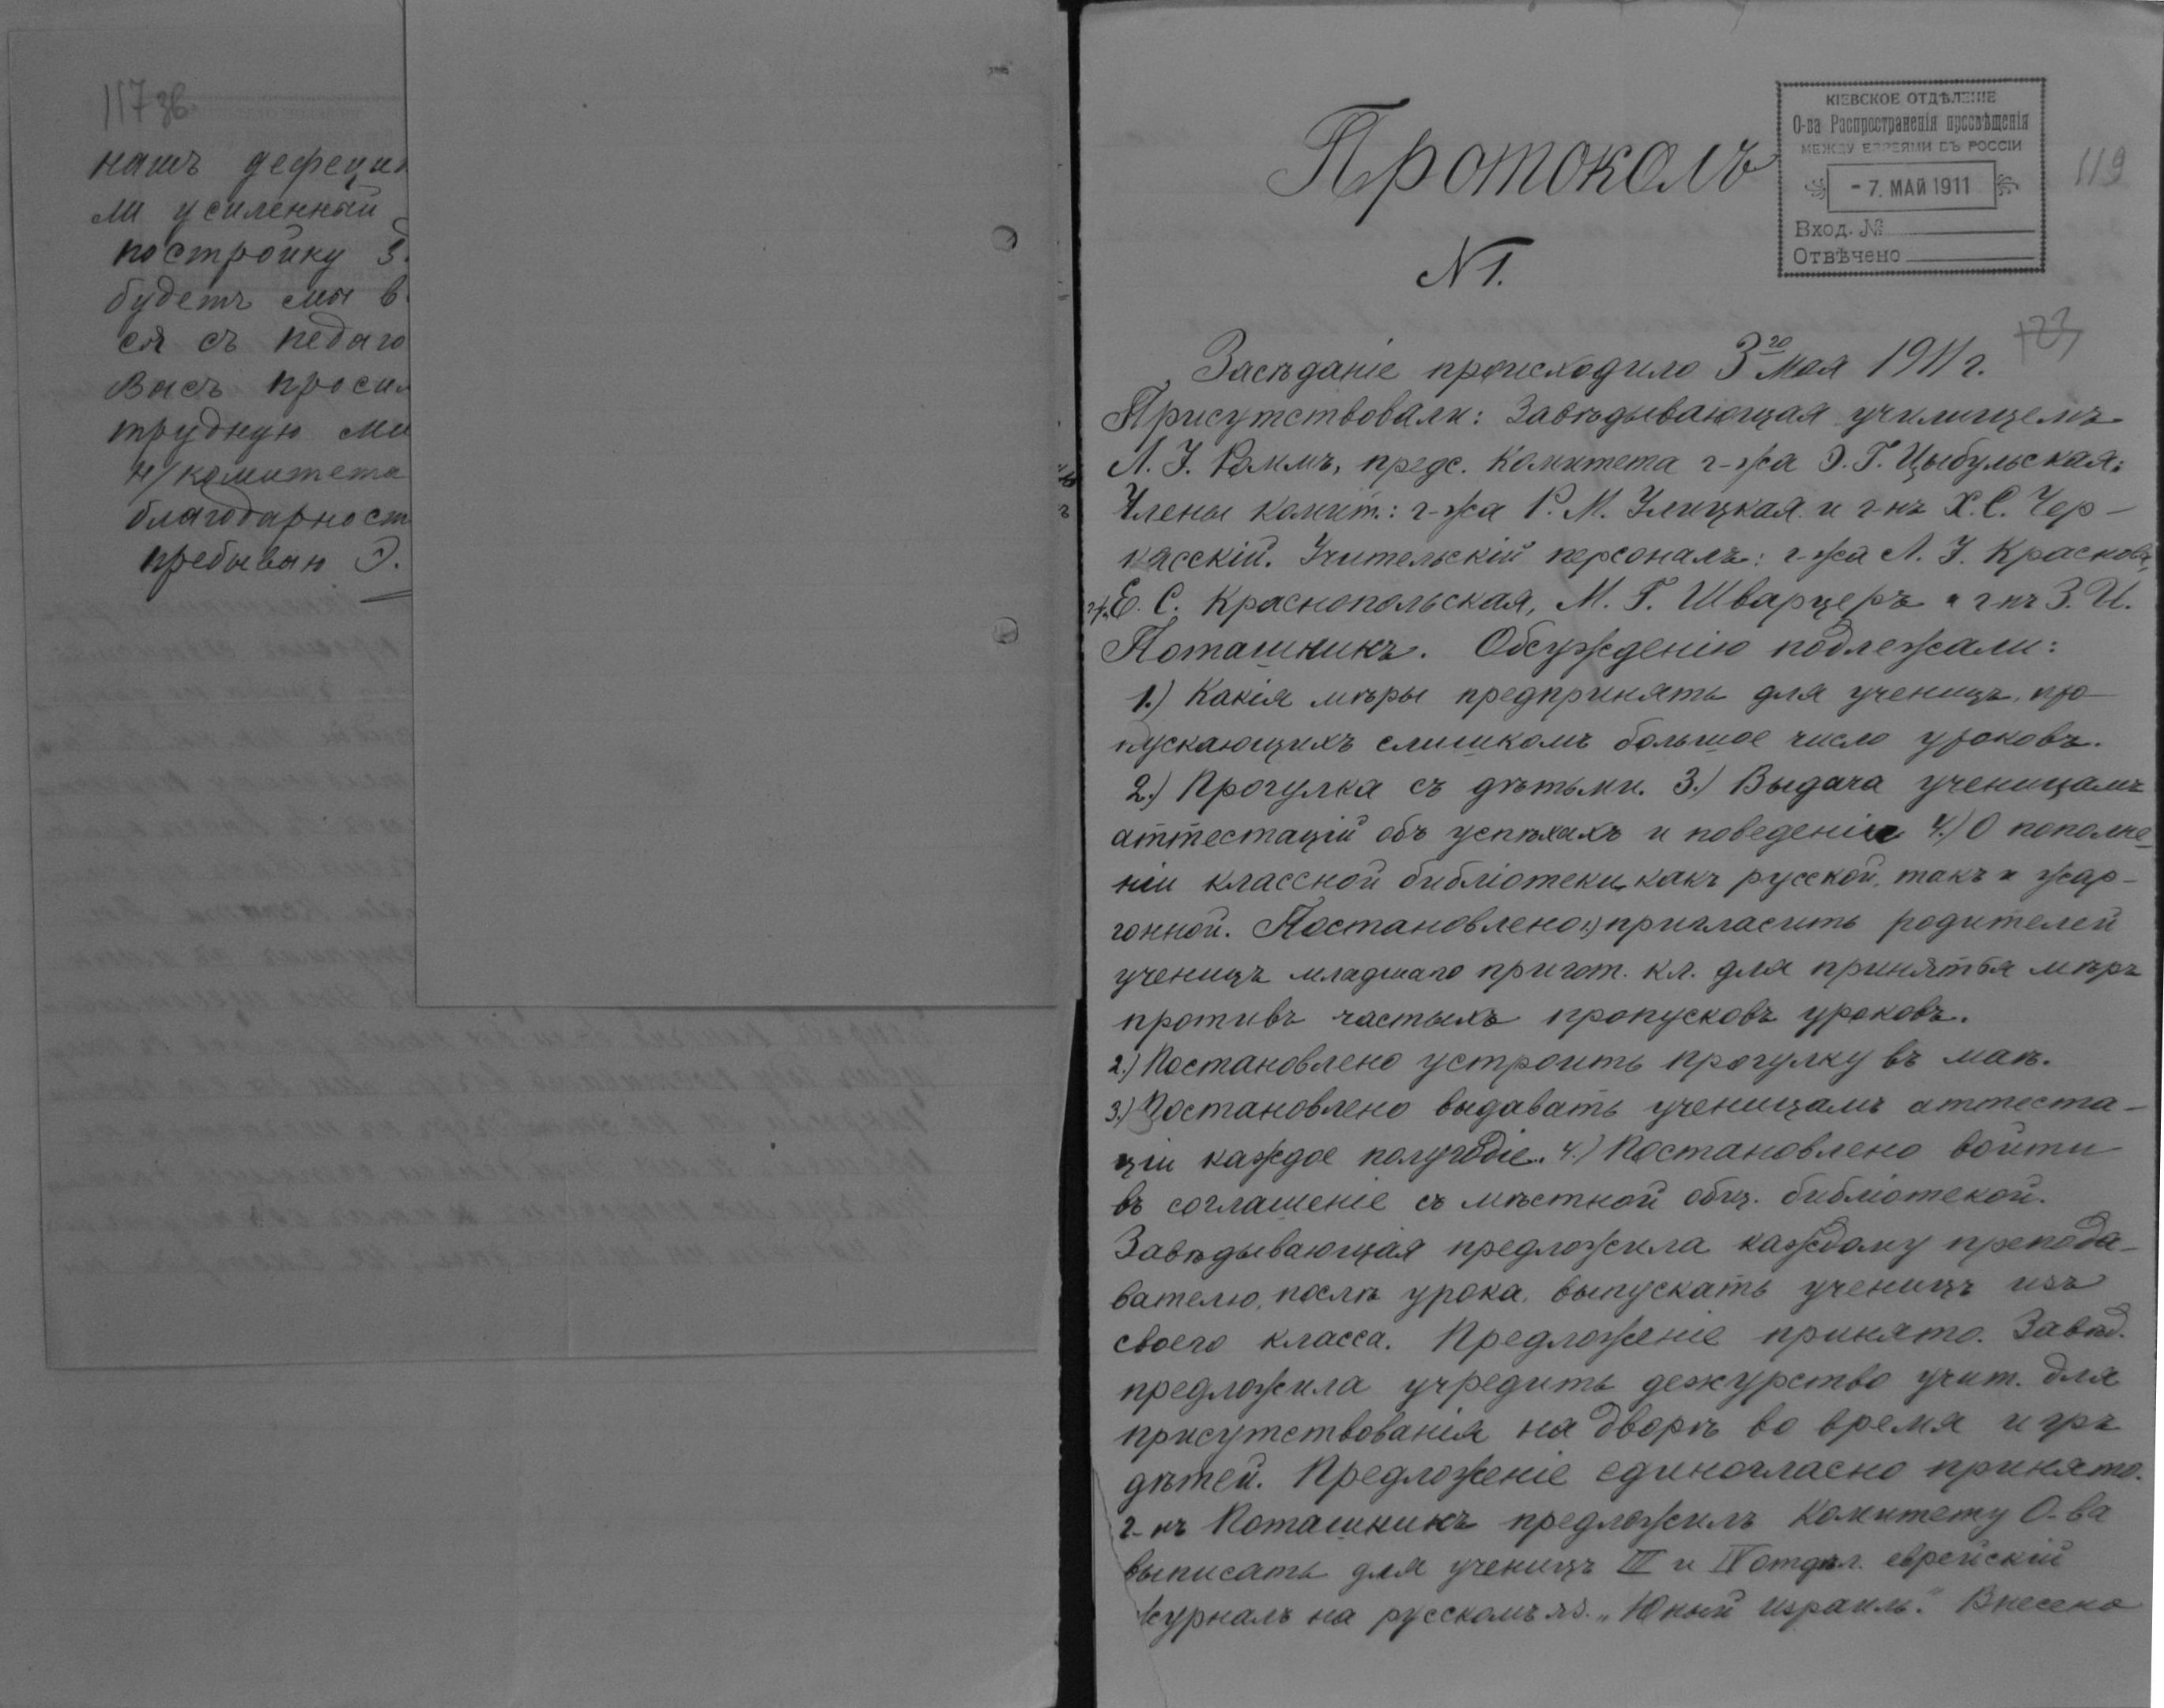 117 зв.
нашъ дефици
ми усиленный
постройку З
будетъ мы в
ся съ педаго
Васъ проси
трудную ми
н/комитета
благодарност
пребываю Э.
КІЕВСКОЕ ОТДѢЛЕНІЕ
О-ва Распространенія просвѣщенія
МЕЖДУ ЕВРЕЯМИ ВЪ РОССІИ
- 7. МАЙ 1911
Вход. №
Отвѣчено
119
Протоколъ
N 1.
123
Засѣданіе происходило 3го Мая 1911 г.
Присутствовали: Завѣдывающая училищемъ
Л. І. Раммъ, предс. Комитета г-жа Э. Г. Цыбульская;
Члены комит.: г-жа Р. М. Улицкая и г-нъ Х. С. Чер-
касскій. Учительскій персоналъ: г-жа Л. І. Краснова,
г-ж. Е. С. Краснопольская, М. Г. Шварцеръ и г-нъ З. И.
Поташникъ. Обсужденію подлежали:
1.) Какія мѣры предпринять для ученицъ, про-
пускающихъ слишкомъ большое число уроковъ.
2.) Прогулка съ дѣтьми. 3.) Выдача ученицамъ
аттестацій объ успѣхахъ и поведеніи 4.) О пополне-
ніи классной библіотеки, какъ русской, такъ и жар-
гонной. Постановлено 1.) пригласить родителей
ученицъ младшаго пригот. кл. для принятія мѣръ
противъ частыхъ пропусковъ уроковъ.
2.) Постановлено устроить прогулку въ маѣ.
3.) Постановлено выдавать ученицамъ аттеста-
ціи каждое полугодіе. 4.) Постановлено войти
въ соглашеніе съ мѣстной общ. библіотекой.
Завѣдывающая предложила каждому препода-
вателю, послѣ урока, выпускать ученицъ изъ
своего класса. Предложеніе принято. Завѣд.
предложила учредить дежурство учит. для
присутствованія на дворѣ во время игръ
дѣтей. Предложеніе единогласно принято.
г-нъ Поташникъ предложилъ Комитету О-ва
выписать для ученицъ III и IV отдѣл. еврейскій
журналъ на русскомъ яз. „Юный израиль." Внесено